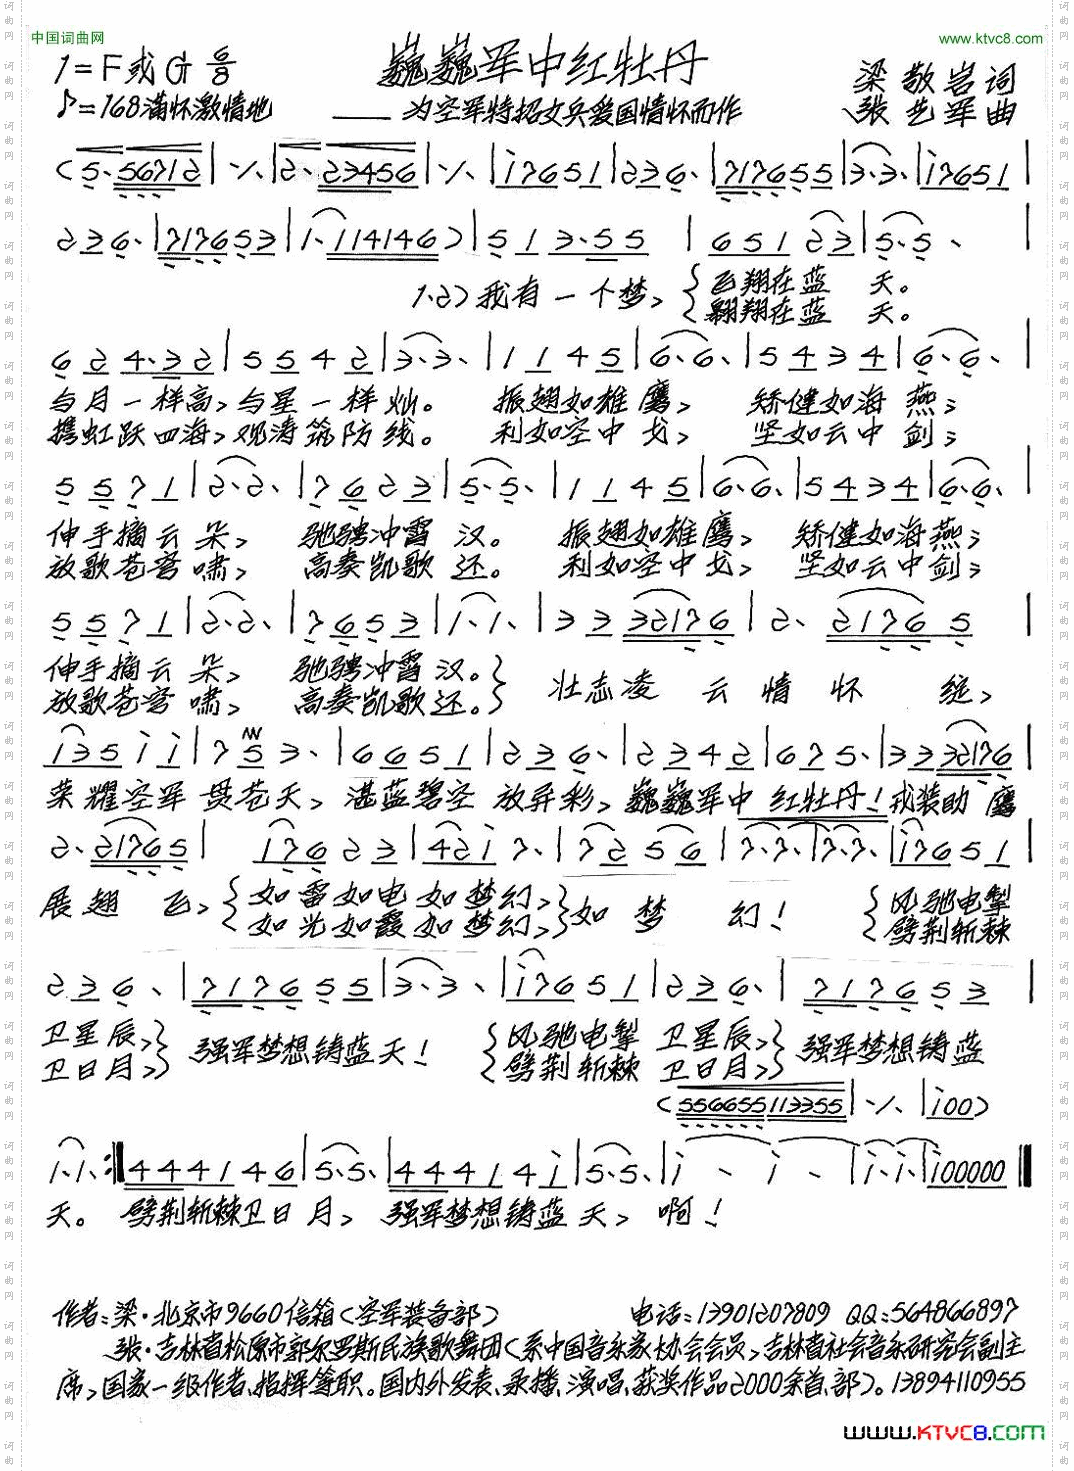 中国词曲网
www.ktvc8.com
1=F或G 6/8
巍巍军中红牡丹
梁敬岩词
♪=168满怀激情地
——为空军特招文兵爱国情怀而作
张艺军曲
(5·56712|·/·|2·23456|·/·|i7651|236·|717655|3·3·|i7651|
236·|717653|1·114146)|513·55|65123|5·5·|
1.2)我有一个梦,{飞翔在蓝 天。
翱翔在蓝 天。
624·32|5542|3·3·|1145|6·6·|5434|6·6·|
与月一样高,与星一样灿。 振翅如雄鹰, 矫健如海燕;
携虹跃四海,观涛筑防线。 利如空中戈, 坚如云中剑;
5571|2·2·|7623|5·5·|1145|6·6·|5434|6·6·|
伸手摘云朵, 驰骋冲霄汉。 振翅如雄鹰, 矫健如海燕;
放歌苍穹啸, 高奏凯歌还。 利如空中戈, 坚如云中剑;
5571|2·2·|7653|1·1·|3332176|2·21765|
伸手摘云朵, 驰骋冲霄汉。}
放歌苍穹啸, 高奏凯歌还。} 壮志凌云情怀绽,
i35ii|753·|6651|236·|2342|675·|3332176|
荣耀空军贯苍天, 湛蓝碧空放异彩, 巍巍军中红牡丹!戎装助鹰
2·21765|17623|42i7·|7256|7·7·|7·7·|i7651|
展翅飞,{如雷如电如梦幻,}如梦幻! {风驰电掣
{如光如霞如梦幻,} {劈荆斩棘
236·|717655|3·3·|i7651|236·|717653|
卫星辰,} 强军梦想铸蓝天! {风驰电掣 卫星辰,} 强军梦想铸蓝
卫日月,} {劈荆斩棘 卫日月,}
(556655113355|·/·|i00)
1·1·:‖444146|5·5·|44414i|5·5·|i·i·|i·i·|i00000‖
天。 劈荆斩棘卫日月, 强军梦想铸蓝天, 啊!
作者:梁·北京市9660信箱(空军装备部) 电话:13901207809 QQ:564866897
张·吉林省松原市郭尔罗斯民族歌舞团(系中国音乐家协会会员,吉林省社会音乐研究会副主
席,国家一级作者、指挥等职。国内外发表、录播、演唱、获奖作品2000余首、部)。13894110955
www.KTVC8.com